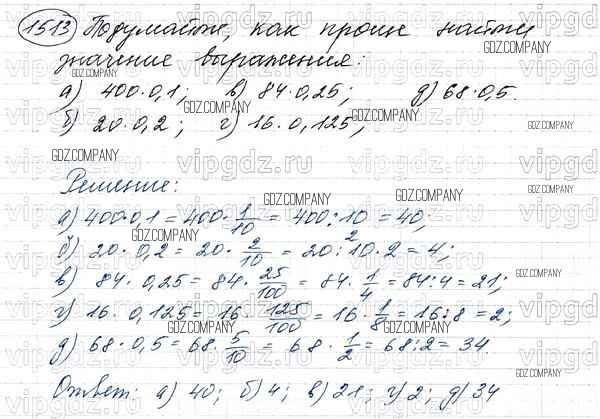 1513 Подумайте, как проще найти
значение выражения:
а) 400·0,1; в) 84·0,25; д) 68·0,5.
б) 20·0,2; г) 16·0,125;
Решение:
а) 400·0,1 = 400·1/10 = 400:10 = 40;
б) 20·0,2 = 20·2/10 = 20:10·2 = 4;
в) 84·0,25 = 84·25/100 = 84·1/4 = 84:4 = 21;
г) 16·0,125 = 16·125/100 = 16·1/8 = 16:8 = 2;
д) 68·0,5 = 68·5/10 = 68·1/2 = 68:2 = 34.
Ответ: а) 40; б) 4; в) 21; г) 2; д) 34
GDZ.COMPANY
vipgdz.ru